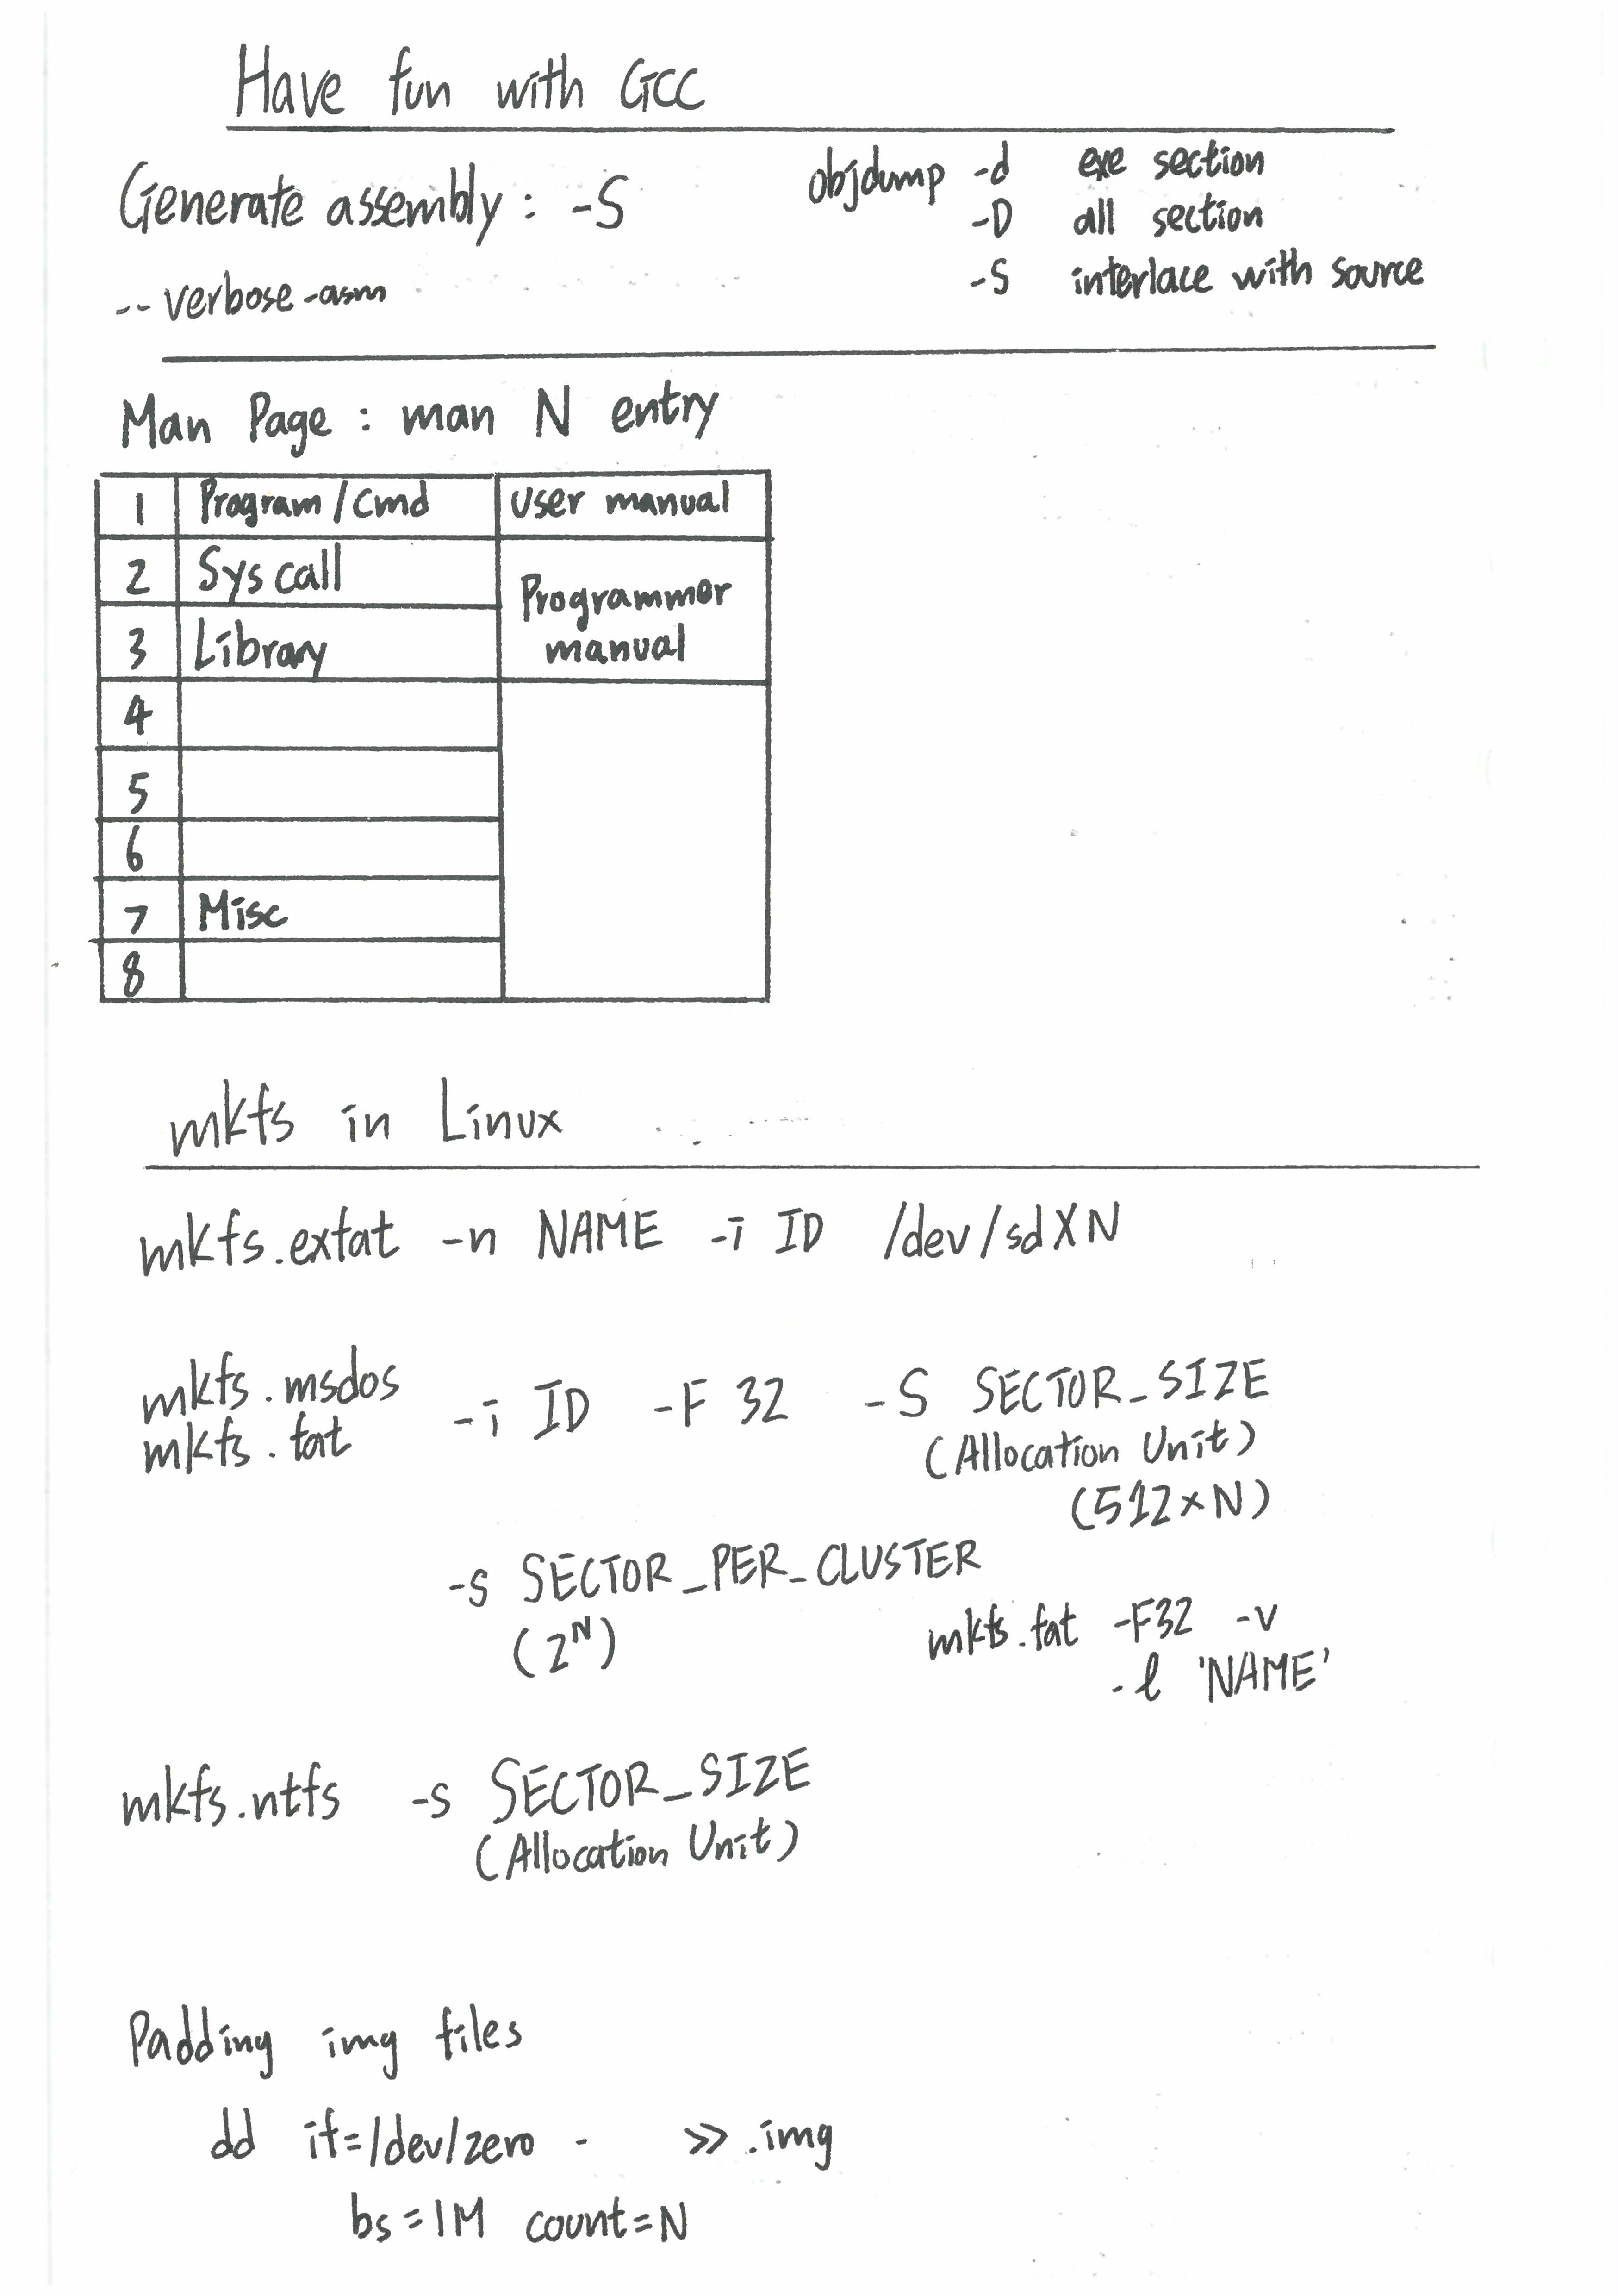 Have fun with GCC
Generate assembly : -S
--verbose-asm
objdump -d exe section
-D all section
-S interlace with source
Man Page : man N entry
1 Program/Cmd User manual
2 Syscall
3 Library
Programmer
manual
4
5
6
7 Misc
8
mkfs in Linux
mkfs.exfat -n NAME -i ID /dev/sdXN
mkfs.msdos
mkfs.fat
-i ID -F 32 -S SECTOR_SIZE
(Allocation Unit)
(512×N)
-s SECTOR_PER_CLUSTER
(2^N)
mkfs.fat -F32 -v
-l 'NAME'
mkfs.ntfs -s SECTOR_SIZE
(Allocation Unit)
Padding img files
dd if=/dev/zero - >> .img
bs=1M count=N